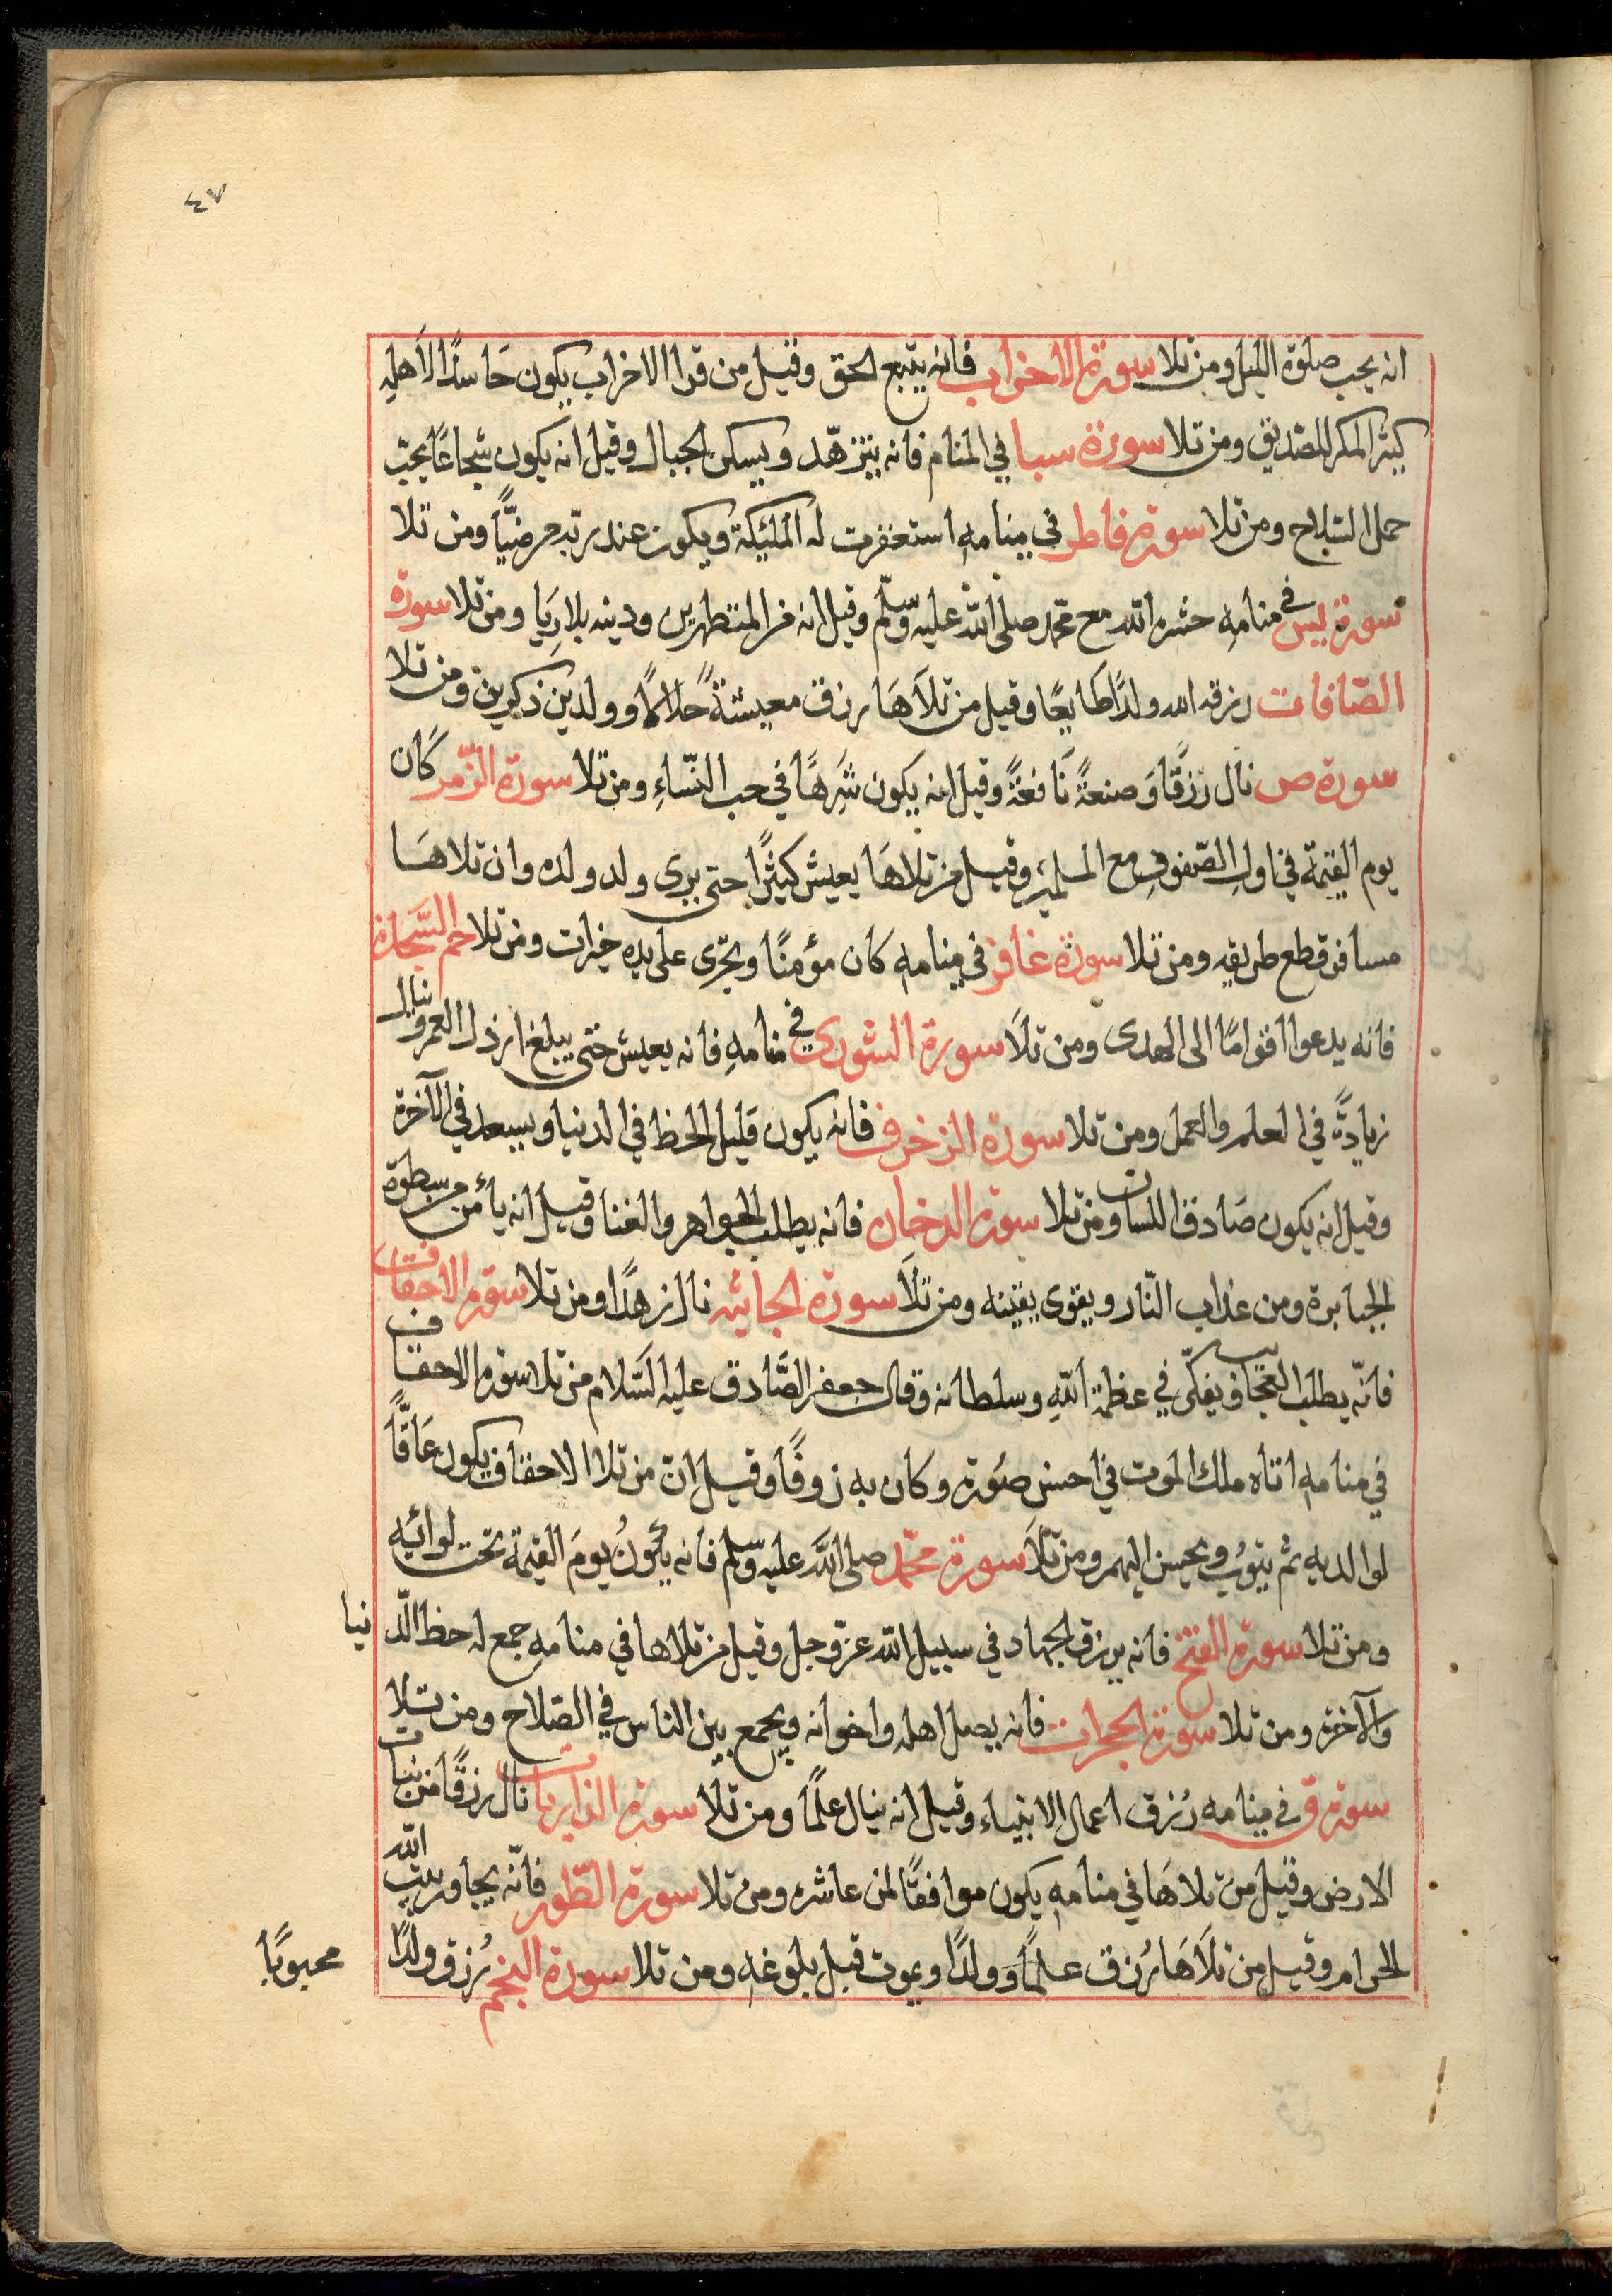 ٤٧
انه يحب صلوة الليل ومن تلا سورة الاحزاب فانه يتبع الحق وقيل من قرا الاحزاب يكون حَاسدًا لاَهلِهِ
كثير المكر للصّديق ومن تلا سورة سبا في المنام فانه يتزهّد ويسكن الجبال وقيل انه يكون شجاعًا يحبّ
حمل السّلاح ومن تلا سورة فاطر في منامهِ استغفرت له المليكة ويكون عند ربّه مرضيًّا ومن تلا
سورة يس في منامهِ حشره الله مع محمّد صلى الله عليه وسلّم وقيل انه من المتطهرين ودينه بلارِيَا ومن تلا سورة
الصّافات رزقه الله ولدًا طايعًا وقيل من تلاَهَا رزق معيشةً حلالًا وولدين ذكرين ومن تلا
سورة ص نال رزقًا وَصنعةً نَافعَةً وقيل انه يكون شَرِهًا في حب النّسَاءِ ومن تلا سورة الزّمر كَان
يوم القيٰمة في اولِ الصّفوفِ مع المسلمين وقيل من تلاهَا يعيش كثيرًا حتى يرى ولد ولده وان تلاهَا
مسافر قطع طريقه ومن تلا سورة غافر في منامهِ كَان مؤمنًا ويجرى على يده خيرات ومن تلا حم السَّجدة
فانه يدعوا اقوامًا الى الهدى ومن تلاَ سورة الشورى في منامهِ فانه يعيش حتى يبلغ ارذل العمر وينال
زيادةً في العلم والعمل ومن تلا سورة الزخرف فانه يكون قليل الحظ في الدنيا ويسعد في الآخرة
وقيل انه يكون صَادق اللسان ومن تلا سورة الدخان فانه يطلب الجواهر والغنا وقيل انه يأمن من سطوة
الجبابرة ومن عذاب النّار ويقوى يقينه ومن تلاَ سورة الجاثيه نال زهدًا ومن تلا سورة الاحقاف
فانّه يطلب العجايب ويفكّر في عظمة اللّهِ وسلطانه وقال جعفر الصَّادق عليه السَّلام من تلا سورة الاحقاف
في منامهِ اتاه ملك الموت في احسن صُورة وكان به رَوفًا وقيل انّ من تلا الاحقاف يكون عَاقًّا
لوالديه ثم يتوُب ويحسن اليهم ومن تلاَ سورة محمّد صلى اللَّه عليه وسلّم فانه يكُونُ يومَ القيٰمة تحت لوائيه
ومن تلا سورة الفتح فانه يرزق الجهاد في سبيل اللّه عزّ وجل وقيل من تلاها في منامهِ جمع له حظ الدّنيا
والآخرة ومن تلا سورة الحجرات فانه يصل اهله واخوانه ويجمع بين الناس في الصّلاح ومن تلا
سورة ق في منامه رُزق اعمال الانبياء وقيل انه ينال علمًا ومن تلا سورة الذاريات نال رزقًا من نبات
الارض وقيل من تلاهَا في منامهِ يكون موافقًا لمن عاشره ومن تلا سورة الطّور فانّه يجاور بيت الله
الحرام وقيل من تلاَهَا رُزق علمًا وَولدًا ويموت قبل بلوغهِ ومن تلا سورة النجم رُزق ولدًا
محبوبًا